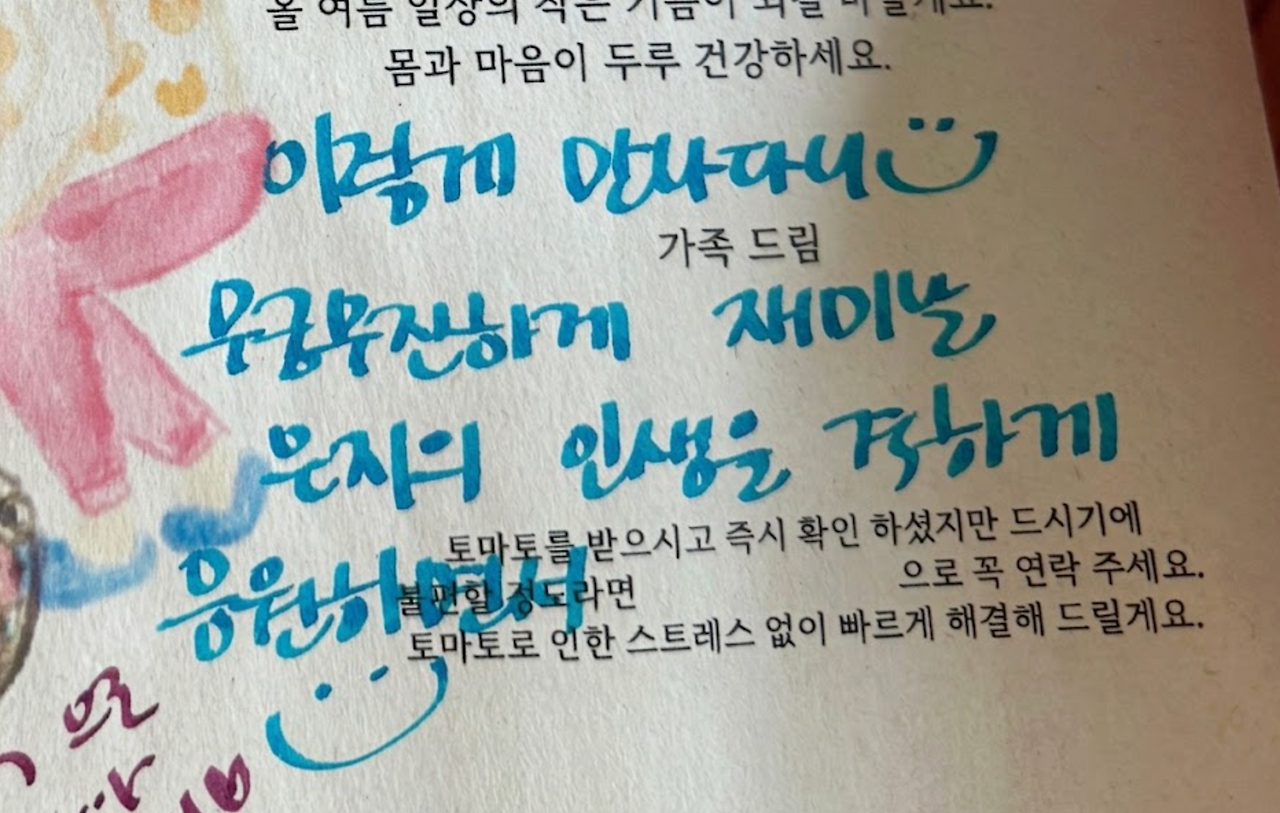 올 여름 일상의 작은 기쁨이 되길 바랄게요.
몸과 마음이 두루 건강하세요.
이렇게 만나다니
가족 드림
무궁무진하게 재미날
은지의 인생을 격하게
토마토를 받으시고 즉시 확인 하셨지만 드시기에
불편할 정도라면 으로 꼭 연락 주세요.
응원하면서
토마토로 인한 스트레스 없이 빠르게 해결해 드릴게요.